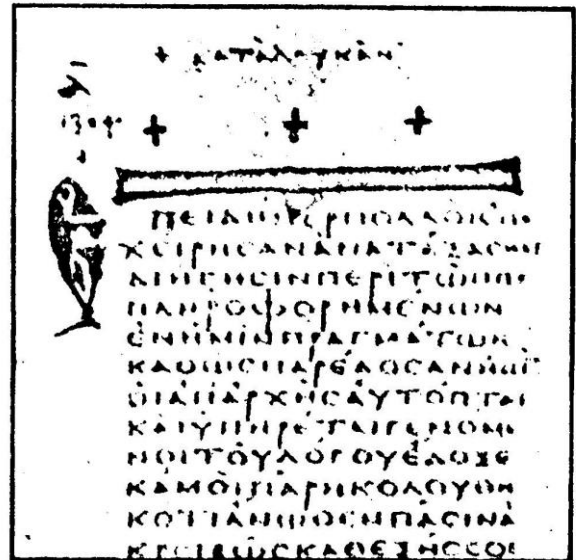 + κατὰ λουκᾶν
+ + +
ΕΠΕΙΔΗΠΕΡΠΟΛΛΟΙΕΠΕ
ΧΕΙΡΗCΑΝΑΝΑΤΑΞΑCΘΑΙ
ΔΙΗΓΗCΙΝΠΕΡΙΤΩΝΠΕ
ΠΛΗΡΟΦΟΡΗΜΕΝΩΝ
ΕΝΗΜΙΝΠΡΑΓΜΑΤΩΝ
ΚΑΘΩCΠΑΡΕΔΟCΑΝΗΜΙ
ΟΙΑΠΑΡΧΗCΑΥΤΟΠΤΑΙ
ΚΑΙΥΠΗΡΕΤΑΙΓΕΝΟΜΕ
ΝΟΙΤΟΥΛΟΓΟΥΕΔΟΞΕ
ΚΑΜΟΙΠΑΡΗΚΟΛΟΥΘΗ
ΚΟΤΙΑΝΩΘΕΝΠΑCΙΝΑ
ΚΡΙΒΩCΚΑΘΕΞΗCCΟΙ